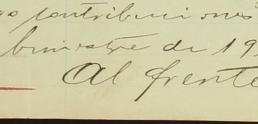 contribuciones
bimestre de 19
Al frente